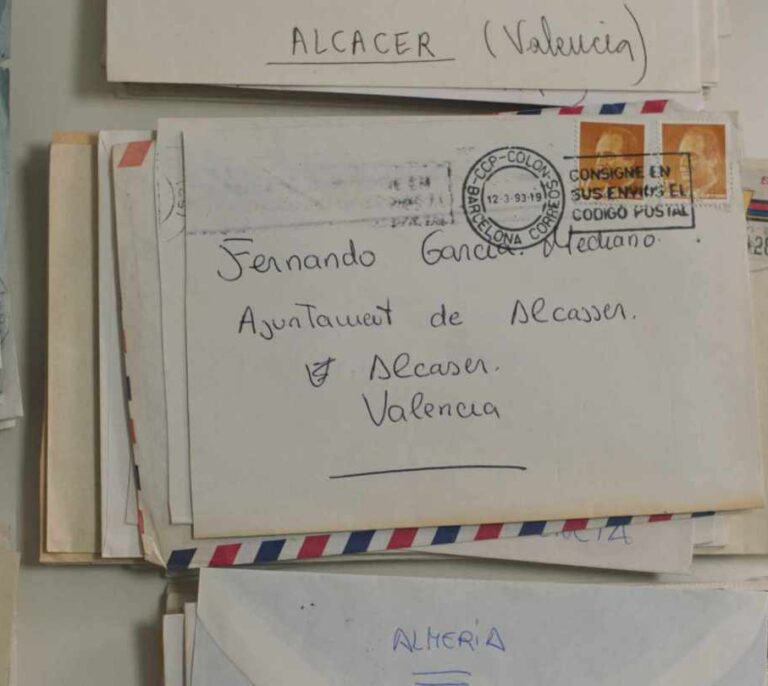 ALCACER (Valencia)
BARCELONA CCP-COLON-SOS CORREOS
12-3-93-19
CONSIGNE EN
SUS ENVIOS EL
CODIGO POSTAL
Fernando García Medrano.
Ajuntament de Alcasser.
Alcaser.
Valencia
ALMERÍA